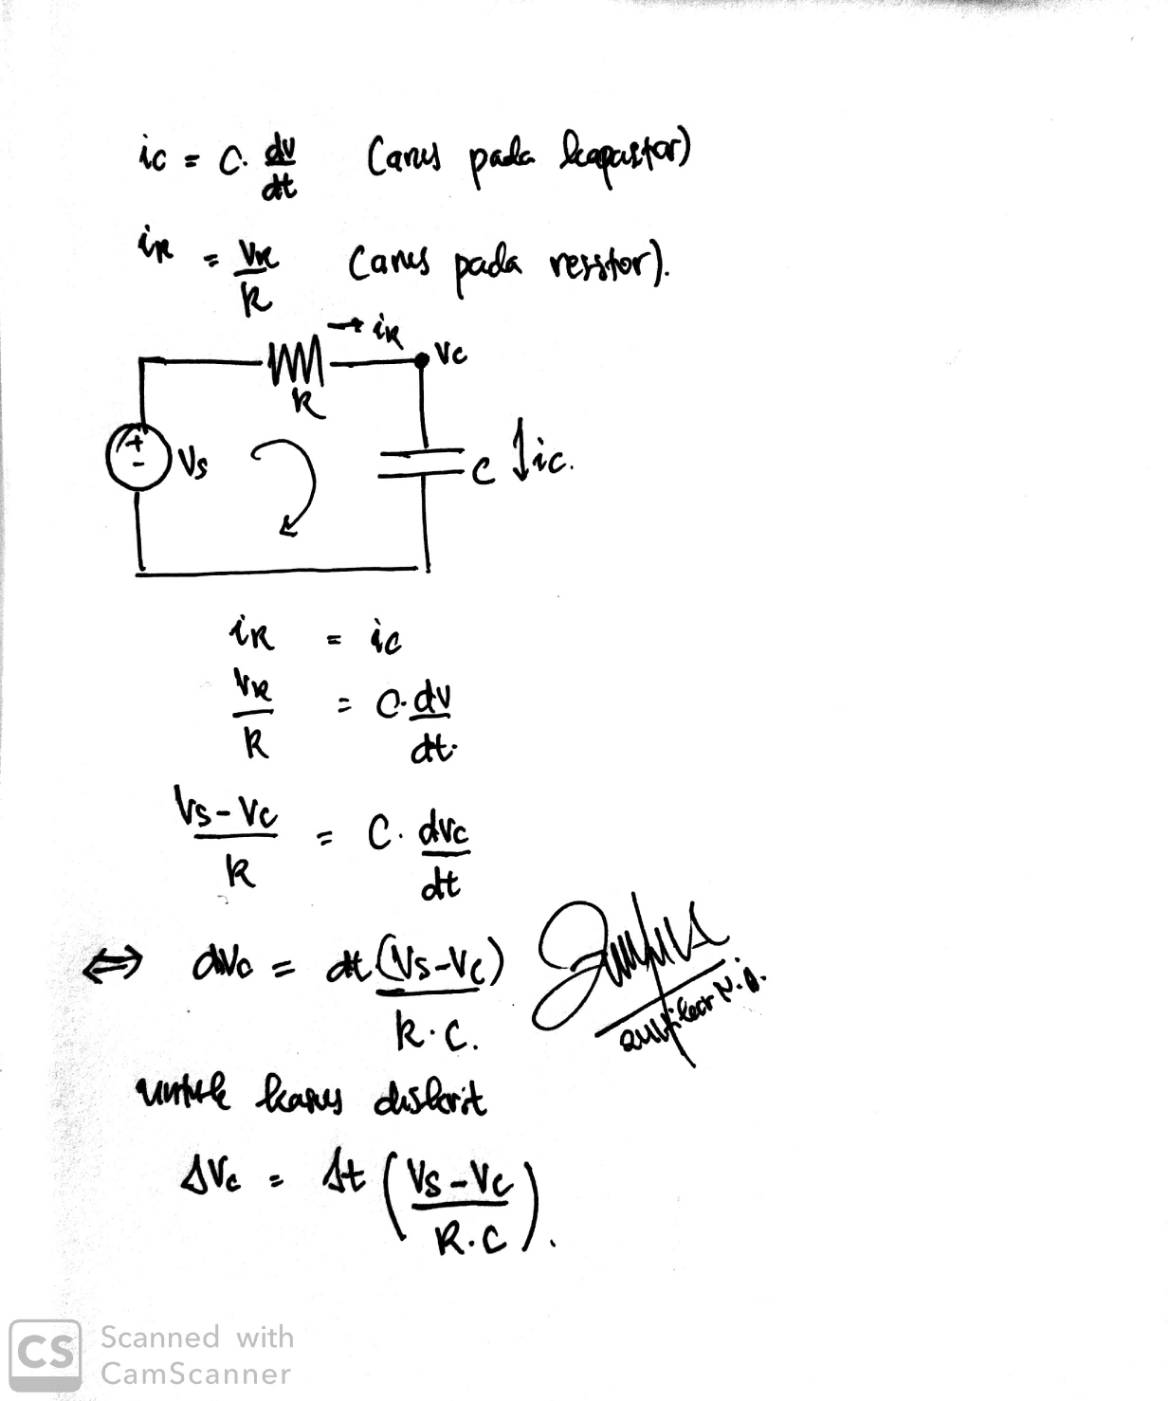 ic = C. dv/dt (arus pada kapasitor)
iR = VR/R (arus pada resistor).
→ iR
Vc
R
+
-
Vs
C ↓ic.
iR = ic
VR/R = C. dv/dt.
Vs-Vc/R = C. dvc/dt
⇔ dVc = dt (Vs-Vc)/R.C.
untuk kasus diskrit
ΔVc = Δt (Vs-Vc/R.C).
CS Scanned with
CamScanner